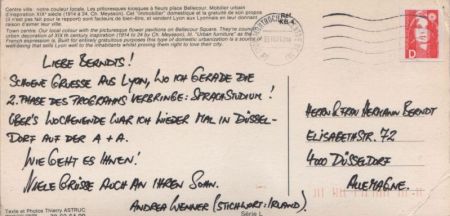 Centre ville : notre couleur locale. Les pittoresques kiosques à fleurs place Bellecour. Mobilier urbain
d'inspiration XIXᵉ siècle (1914 à 24, Ch. Meysson). Cet "immobilier" domestique et la gratuité de son propos
(il n'est pas fait pour le rapport) sont facteurs de bien-être, et vendent Lyon aux Lyonnais en leur donnant
raison d'aimer leur ville.
Town centre. Our local colour with the picturesque flower pavilions on Bellecour Square. They're
urban decoration of XIX th century inspiration (1914 to 24 by Ch. Meysson). "Urban furniture" as the
French expression is. Best for entirely gratuitous purposes this type of domestic urbanization is a source of
well-being that sells Lyon well to the inhabitants whilst proving them right to love their city.
LIEBE BERNDTS!
SCHOENE GRUESSE AUS LYON, WO ICH GERADE DIE
2. PHASE DES PROGRAMMS VERBRINGE: SPRACHSTUDIUM!
ÜBER'S WOCHENENDE WAR ICH WIEDER MAL IN DÜSSEL-
DORF AUF DER A + A.
WIE GEHT ES IHNEN?
VIELE GRÜSSE AUCH AN IHREN SOHN.
ANDREA WENNER (STICHWORT: IRLAND).
D
HERRN & FRAU HERMANN BERNDT
ELISABETHSTR. 72
4000 DÜSSELDORF
ALLEMAGNE.
Texte et Photos Thierry ASTRUC
Série L